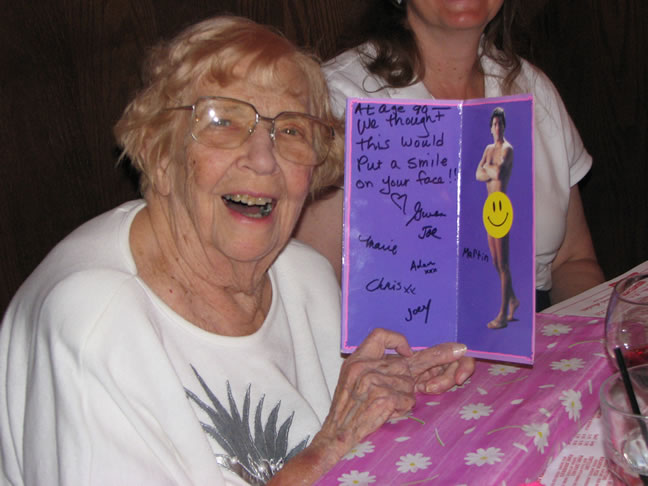 At age 90 —
We thought
this would
Put a smile
on your face!!
♡ Gwen
Joe
Marie
Adam
xxx
Chris xx
Joey
Martin